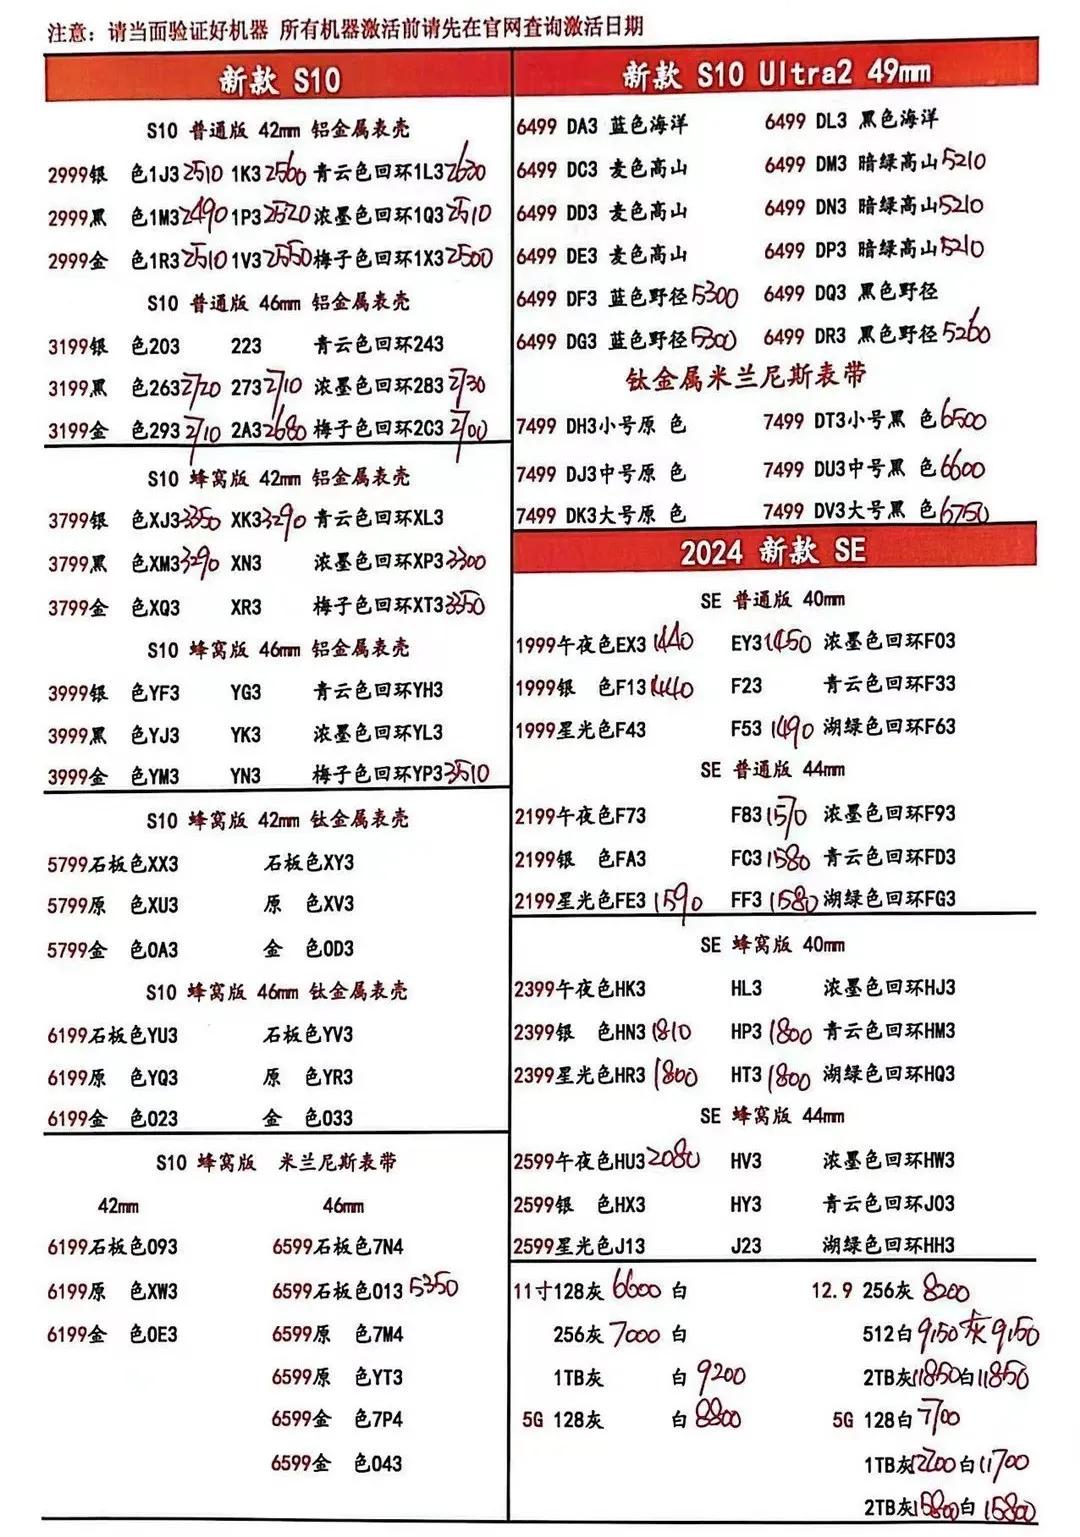 注意: 请当面验证好机器 所有机器激活前请先在官网查询激活日期
新款 S10
S10 普通版 42mm 铝金属表壳
2999银 色1J3 2510 1K3 2560 青云色回环1L3 2630
2999黑 色1M3 2490 1P3 2520 浓墨色回环1Q3 2510
2999金 色1R3 2510 1V3 2550 梅子色回环1X3 2500
S10 普通版 46mm 铝金属表壳
3199银 色203 223 青云色回环243
3199黑 色263 2720 273 2710 浓墨色回环283 2730
3199金 色293 2710 2A3 2680 梅子色回环2C3 2700
S10 蜂窝版 42mm 铝金属表壳
3799银 色XJ3 3350 XK3 3290 青云色回环XL3
3799黑 色XM3 3290 XN3 浓墨色回环XP3 3300
3799金 色XQ3 XR3 梅子色回环XT3 3350
S10 蜂窝版 46mm 铝金属表壳
3999银 色YF3 YG3 青云色回环YH3
3999黑 色YJ3 YK3 浓墨色回环YL3
3999金 色YM3 YN3 梅子色回环YP3 3510
S10 蜂窝版 42mm 钛金属表壳
5799石板色XX3 石板色XY3
5799原 色XU3 原 色XV3
5799金 色0A3 金 色0D3
S10 蜂窝版 46mm 钛金属表壳
6199石板色YU3 石板色YV3
6199原 色YQ3 原 色YR3
6199金 色023 金 色033
S10 蜂窝版 米兰尼斯表带
42mm 46mm
6199石板色093 6599石板色7N4
6199原 色XW3 6599石板色013 5350
6199金 色0E3 6599原 色7M4
6599原 色YT3
6599金 色7P4
6599金 色043
新款 S10 Ultra2 49mm
6499 DA3 蓝色海洋 6499 DL3 黑色海洋
6499 DC3 麦色高山 6499 DM3 暗绿高山 5210
6499 DD3 麦色高山 6499 DN3 暗绿高山 5210
6499 DE3 麦色高山 6499 DP3 暗绿高山 5210
6499 DF3 蓝色野径 5300 6499 DQ3 黑色野径
6499 DG3 蓝色野径 5300 6499 DR3 黑色野径 5260
钛金属米兰尼斯表带
7499 DH3小号原 色 7499 DT3小号黑 色 6500
7499 DJ3中号原 色 7499 DU3中号黑 色 6600
7499 DK3大号原 色 7499 DV3大号黑 色 6750
2024 新款 SE
SE 普通版 40mm
1999午夜色EX3 1440 EY3 1450 浓墨色回环F03
1999银 色F13 1440 F23 青云色回环F33
1999星光色F43 F53 1490 湖绿色回环F63
SE 普通版 44mm
2199午夜色F73 F83 1570 浓墨色回环F93
2199银 色FA3 FC3 1580 青云色回环FD3
2199星光色FE3 1590 FF3 1580 湖绿色回环FG3
SE 蜂窝版 40mm
2399午夜色HK3 HL3 浓墨色回环HJ3
2399银 色HN3 1810 HP3 1800 青云色回环HM3
2399星光色HR3 1800 HT3 1800 湖绿色回环HQ3
SE 蜂窝版 44mm
2599午夜色HU3 2080 HV3 浓墨色回环HW3
2599银 色HX3 HY3 青云色回环J03
2599星光色J13 J23 湖绿色回环HH3
11寸128灰 6600 白 12.9 256灰 8200
256灰 7000 白 512白 9150 灰 9150
1TB灰 白 9200 2TB灰 11850 白 11850
5G 128灰 白 8800 5G 128白 7700
1TB灰 12200 白 11700
2TB灰 15800 白 15800